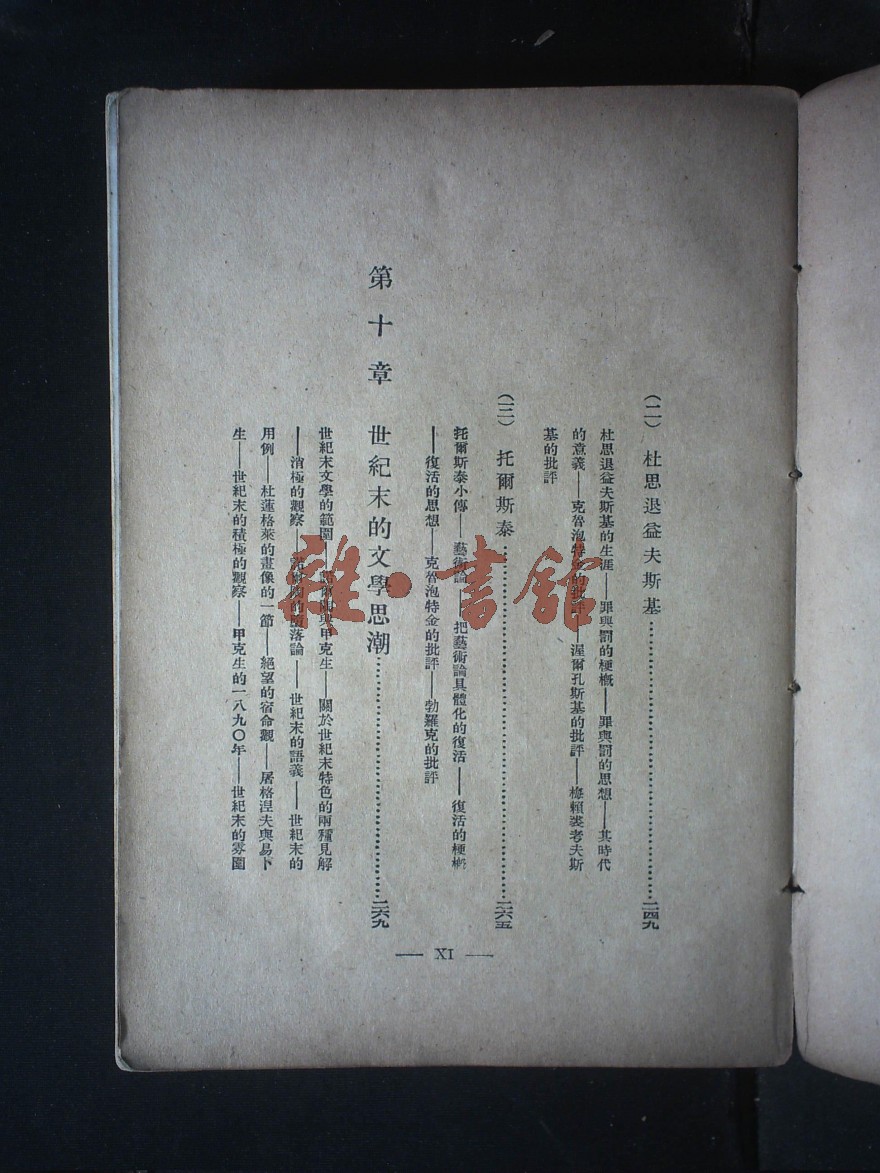 （二）杜思退益夫斯基……二四九
杜思退益夫斯基的生涯——罪與罰的梗概——罪與罰的思想——其時代
的意義——克魯泡特金的批評——渥爾孔斯基的批評——梅賴裘考夫斯
基的批評
（三）托爾斯泰……二六五
托爾斯泰小傳——藝術論——把藝術論具體化的復活——復活的梗概
——復活的思想——克魯泡特金的批評——勃羅克的批評
第十章 世紀末的文學思潮……二六九
世紀末文學的範圍——諾爾陶與甲克生——關於世紀末特色的兩種見解
——消極的觀察——諾爾陶的墮落論——世紀末的語義——世紀末的
用例——杜蓮格萊的畫像的一節——絕望的宿命觀——屠格涅夫與易卜
生——世紀末的積極的觀察——甲克生的一八九〇年——世紀末的雰圍
— XI —
雜·書館